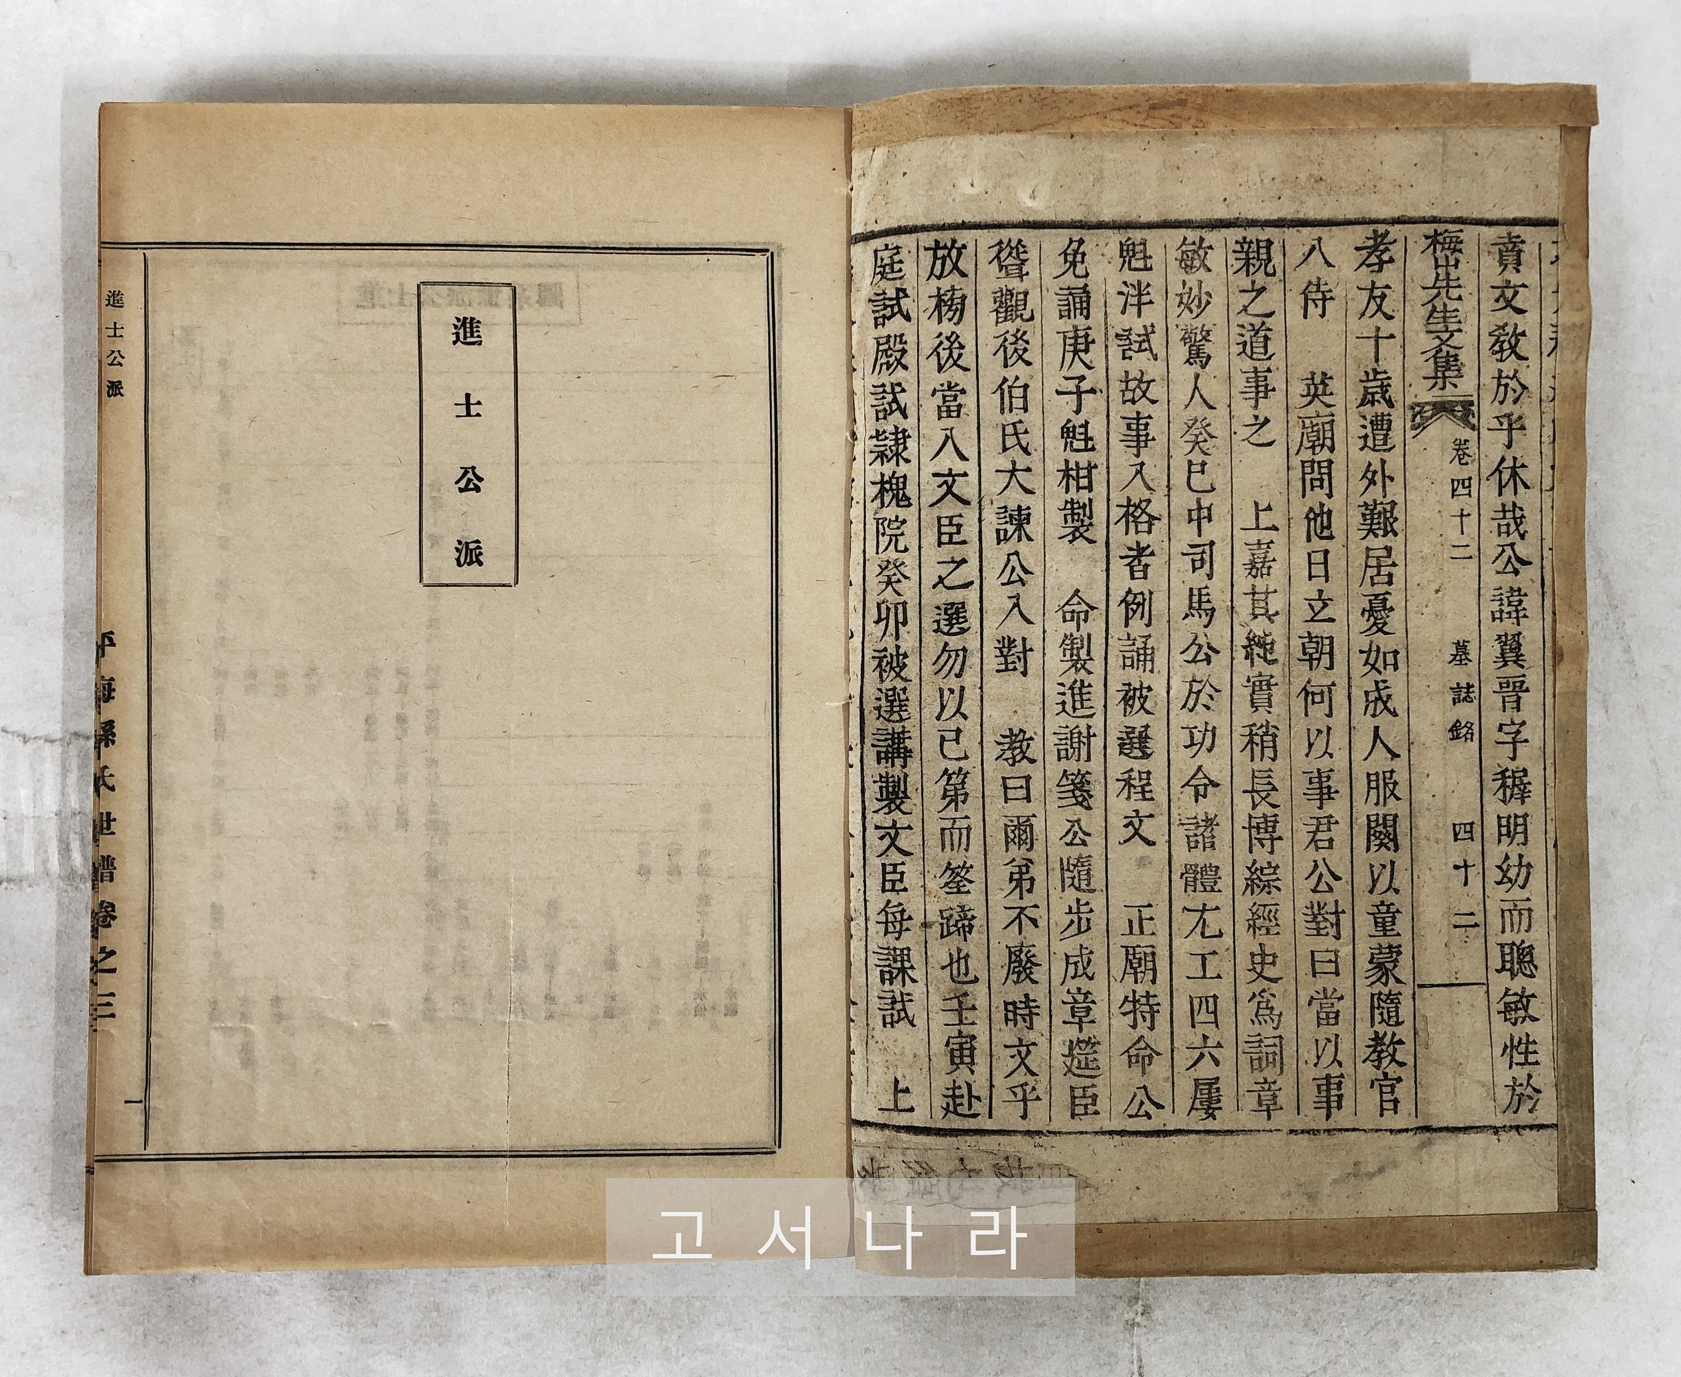 賁文敎於乎休哉公諱翼晋字穉明幼而聰敏性於
梅山先生文集
卷四十二 墓誌銘 四十二
孝友十歲遭外艱居憂如成人服闋以童蒙隨教官
入侍 英廟問他日立朝何以事君公對曰當以事
親之道事之 上嘉其純實稍長博綜經史爲詞章
敏妙驚人癸巳中司馬公於功令諸體尤工四六屢
魁泮試故事入格者例誦被選程文 正廟特命公
免誦庚子魁柑製 命製進謝箋公隨步成章筵臣
聳觀後伯氏大諫公入對 教曰爾弟不廢時文乎
放榜後當入文臣之選勿以已第而筌蹄也壬寅赴
庭試殿試隷槐院癸卯被選講製文臣每課試 上
進士公派
進士公派
平海孫氏世譜卷之三
一
고서나라